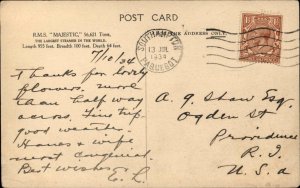 POST CARD
R.M.S. "MAJESTIC," 56,621 Tons,
THE LARGEST STEAMER IN THE WORLD.
Length 955 feet. Breadth 100 feet. Depth 64 feet.
ONLY.
SOUTHAMPTON
13 JUL
1934
7/10/34
Thanks for lovely
flowers. more
than half way
across. Fine trip
good weather.
& wife
most congenial.
Best wishes
E. L.
A. G. Shaw Esq.
Ogden St
Providence
R. I.
U.S.A